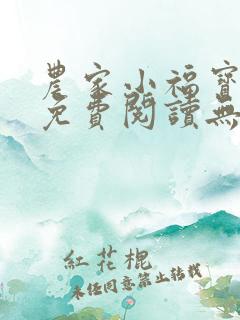 農家小福寶
免費閱讀無
紅花棍
未經同意禁止轉載